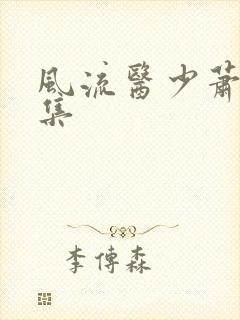 風流醫少蕭
集
李傳森